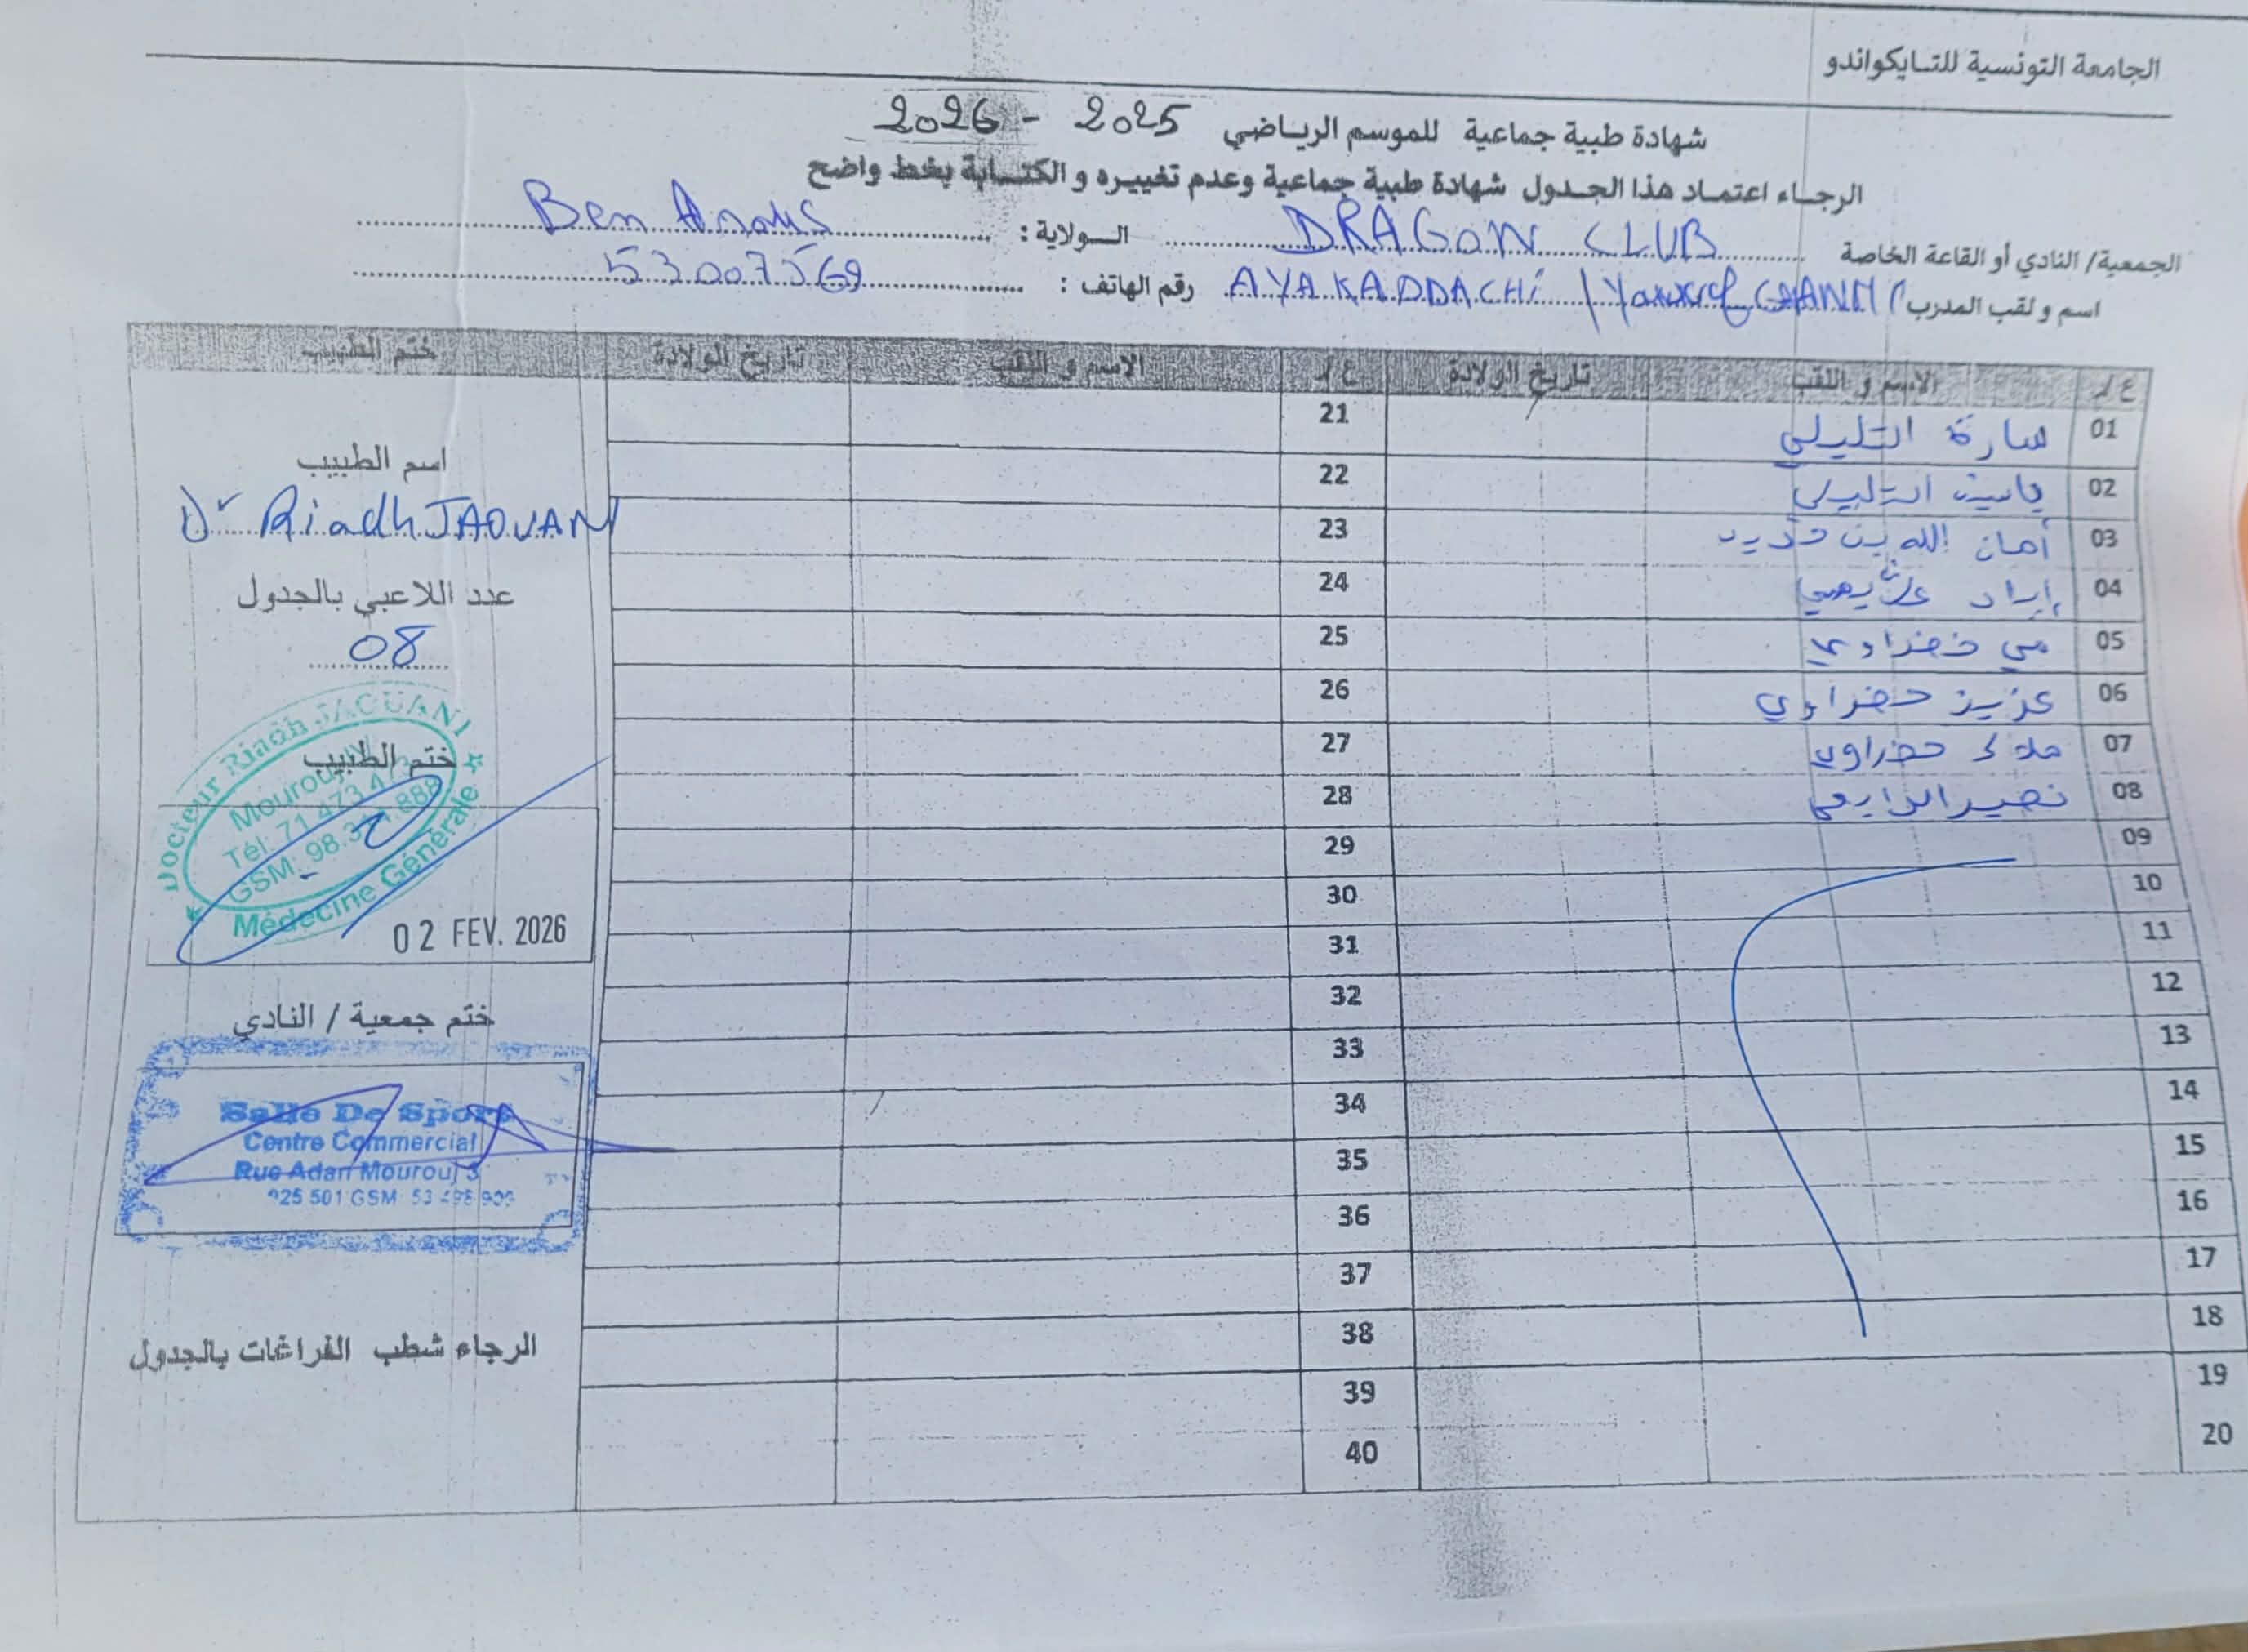 الجامعة التونسية للتايكواندو
شهادة طبية جماعية للموسم الرياضي 2025 - 2026
الرجاء اعتماد هذا الجدول شهادة طبية جماعية وعدم تغييره و الكتابة بخط واضح
الجمعية/ النادي أو القاعة الخاصة DRAGON CLUB الولاية : Ben Arous
اسم و لقب المدرب AYA KADDACHI / رقم الهاتف : 53007569
ع/ر الاسم و اللقب تاريخ الولادة ع/ر الاسم و اللقب تاريخ الولادة ختم الطبيب
01 سارة التليلي 21
02 ياسين التليلي 22
03 أمان الله بن 23
04 إياد 24
05 مي خضراوي 25
06 عزيز خضراوي 26
07 ملاك خضراوي 27
08 نصير 28
09 29
10 30
11 31
12 32
13 33
14 34
15 35
16 36
17 37
18 38
19 39
20 40
اسم الطبيب
Dr Riadh JAOUANI
عدد اللاعبي بالجدول
08
ختم الطبيب
Docteur Riadh JAOUANI
Médecine Générale
02 FEV. 2026
ختم جمعية / النادي
Salle De Sport
Centre Commercial
Rue Adan Mourouj 3
الرجاء شطب الفراغات بالجدول